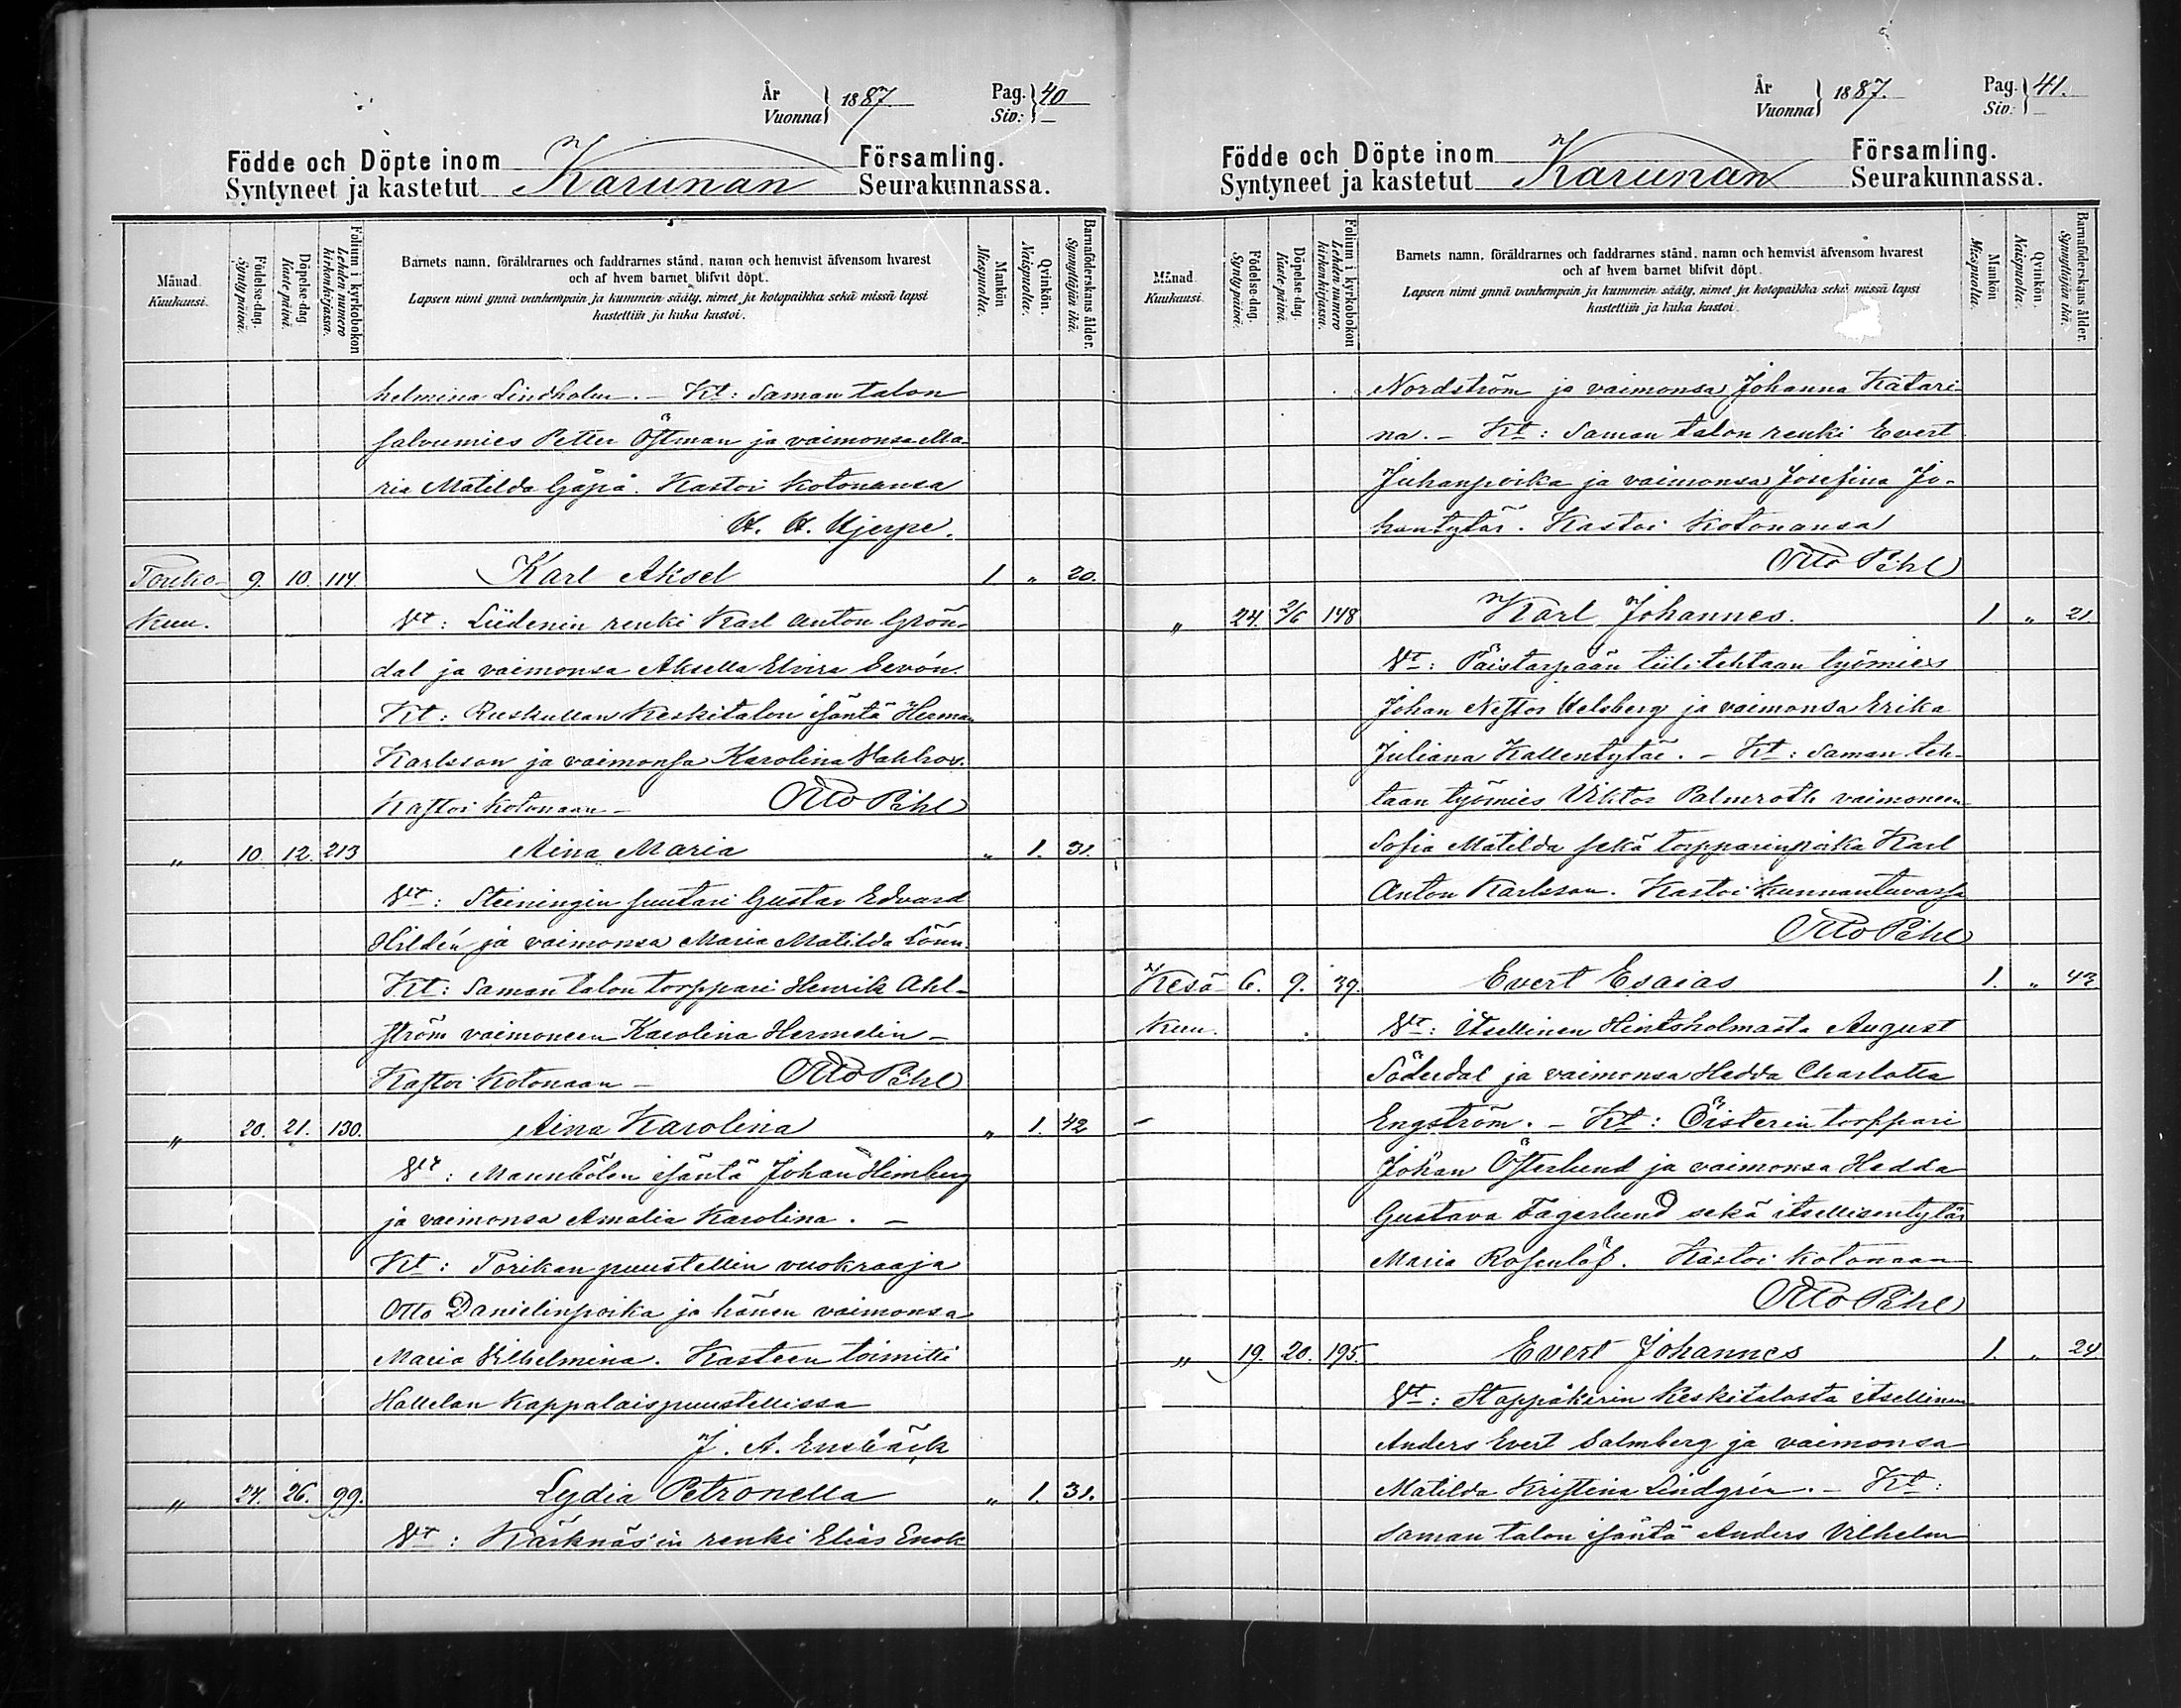 År
Vuonna } 1887.
Pag.
Siv: } 40
Födde och Döpte inom Karunan Församling.
Syntyneet ja kastetut Seurakunnassa.
Månad.
Kuukausi.
Födelse-dag.
Synty päivä.
Döpelse-dag.
Kaste päivä.
Folium i kyrkoboken
Lehden numero
kirkonkirjassa.
Barnets namn, föräldrarnes och faddrarnes stånd, namn och hemvist äfvensom hvarest
och af hvem barnet blifvit döpt.
Lapsen nimi ynnä vanhempain ja kummein sääty, nimet ja kotopaikka sekä missä lapsi
kastettiin ja kuka kastoi.
Mankön
Miespuolta.
Qvinkön.
Naispuolta.
Barnaföderskans ålder.
Synnyttäjän ikä.
helmina Lindholm. – Kt: Saman talon
salvumies Petter Östman ja vaimonsa Ma-
ria Matilda Gåpå. Kastoi kotonansa
H. H. Hjerpe.
Touko- 9. 10. 114. Karl Aksel 1. „ 20.
Kuu. Vt: Liidenin renki Karl Anton Grön-
dal ja vaimonsa Aksella Elvira Sevón.
Kt: Ruskullan Keskitalon isäntä Herman
Karlsson ja vaimonsa Karolina Vahlroos.
Kastoi kotonaan – Otto Påhl
„ 10. 12. 213 Aina Maria „ 1. 31.
Vt: Steiningin suutari Gustav Edvard
Hildén ja vaimonsa Maria Matilda Lönn.
Kt: Saman talon torppari Henrik Ahl-
ström vaimoneen Karolina Hermelin –
Kastoi kotonaan – Otto Påhl
„ 20. 21. 130. Aina Karolina „ 1. 42
Vt: Mannbölen isäntä Johan Himberg
ja vaimonsa Amalia Karolina. –
Kt: Torikan puustellin vuokraaja
Otto Danielinpoika ja hänen vaimonsa
Maria Vilhelmina. Kasteen toimitti
Hallelan Kappalaispuustellissa
J. A. Ensbäck
„ 24. 26. 99. Lydia Petronella „ 1. 31.
Vt: Kärknäs'in renki Elias Enok
År
Vuonna } 1887.
Pag.
Siv: } 41.
Födde och Döpte inom Karunan Församling.
Syntyneet ja kastetut Seurakunnassa.
Månad.
Kuukausi.
Födelse-dag.
Synty päivä.
Döpelse-dag.
Kaste päivä.
Folium i kyrkoboken
Lehden numero
kirkonkirjassa.
Barnets namn, föräldrarnes och faddrarnes stånd, namn och hemvist äfvensom hvarest
och af hvem barnet blifvit döpt.
Lapsen nimi ynnä vanhempain ja kummein sääty, nimet ja kotopaikka sekä missä lapsi
kastettiin ja kuka kastoi.
Mankön
Miespuolta.
Qvinkön.
Naispuolta.
Barnaföderskans ålder.
Synnyttäjän ikä.
Nordström ja vaimonsa Johanna Katari-
na. – Kt: Saman talon renki Evert
Juhanpoika ja vaimonsa Josefina Jo-
hantytär. Kastoi kotonansa
Otto Påhl
„ 24. 2/6 148 Karl Johannes. 1 „ 21.
Vt: Päistarpään tiilitehtaan työmies
Johan Nestor Helsberg ja vaimonsa Erika
Juliana Kallentytär. – Kt: Saman teh-
taan työmies Viktor Palmroth vaimoneen
Sofia Matilda sekä torpparinpoika Karl
Anton Karlsson. Kastoi kunnantuvassa
Otto Påhl
Kesä- 6. 9. 39. Evert Esaias 1. „ 43.
Kuu. Vt: Itsellinen Hintsholmasta August
Söderdal ja vaimonsa Hedda Charlotta
Engström. – Kt: Öisterin torppari
Johan Österlund ja vaimonsa Hedda
Gustava Fagerlund sekä itsellisentytär
Maria Rosenlöf. Kastoi kotonaan
Otto Påhl
„ 19. 20. 195. Evert Johannes 1. „ 24
Vt: Stoppåkerin Keskitalosta itsellinen
Anders Evert Salmberg ja vaimonsa
Matilda Kristina Lindgrén. – Kt:
Saman talon isäntä Anders Vilhelm